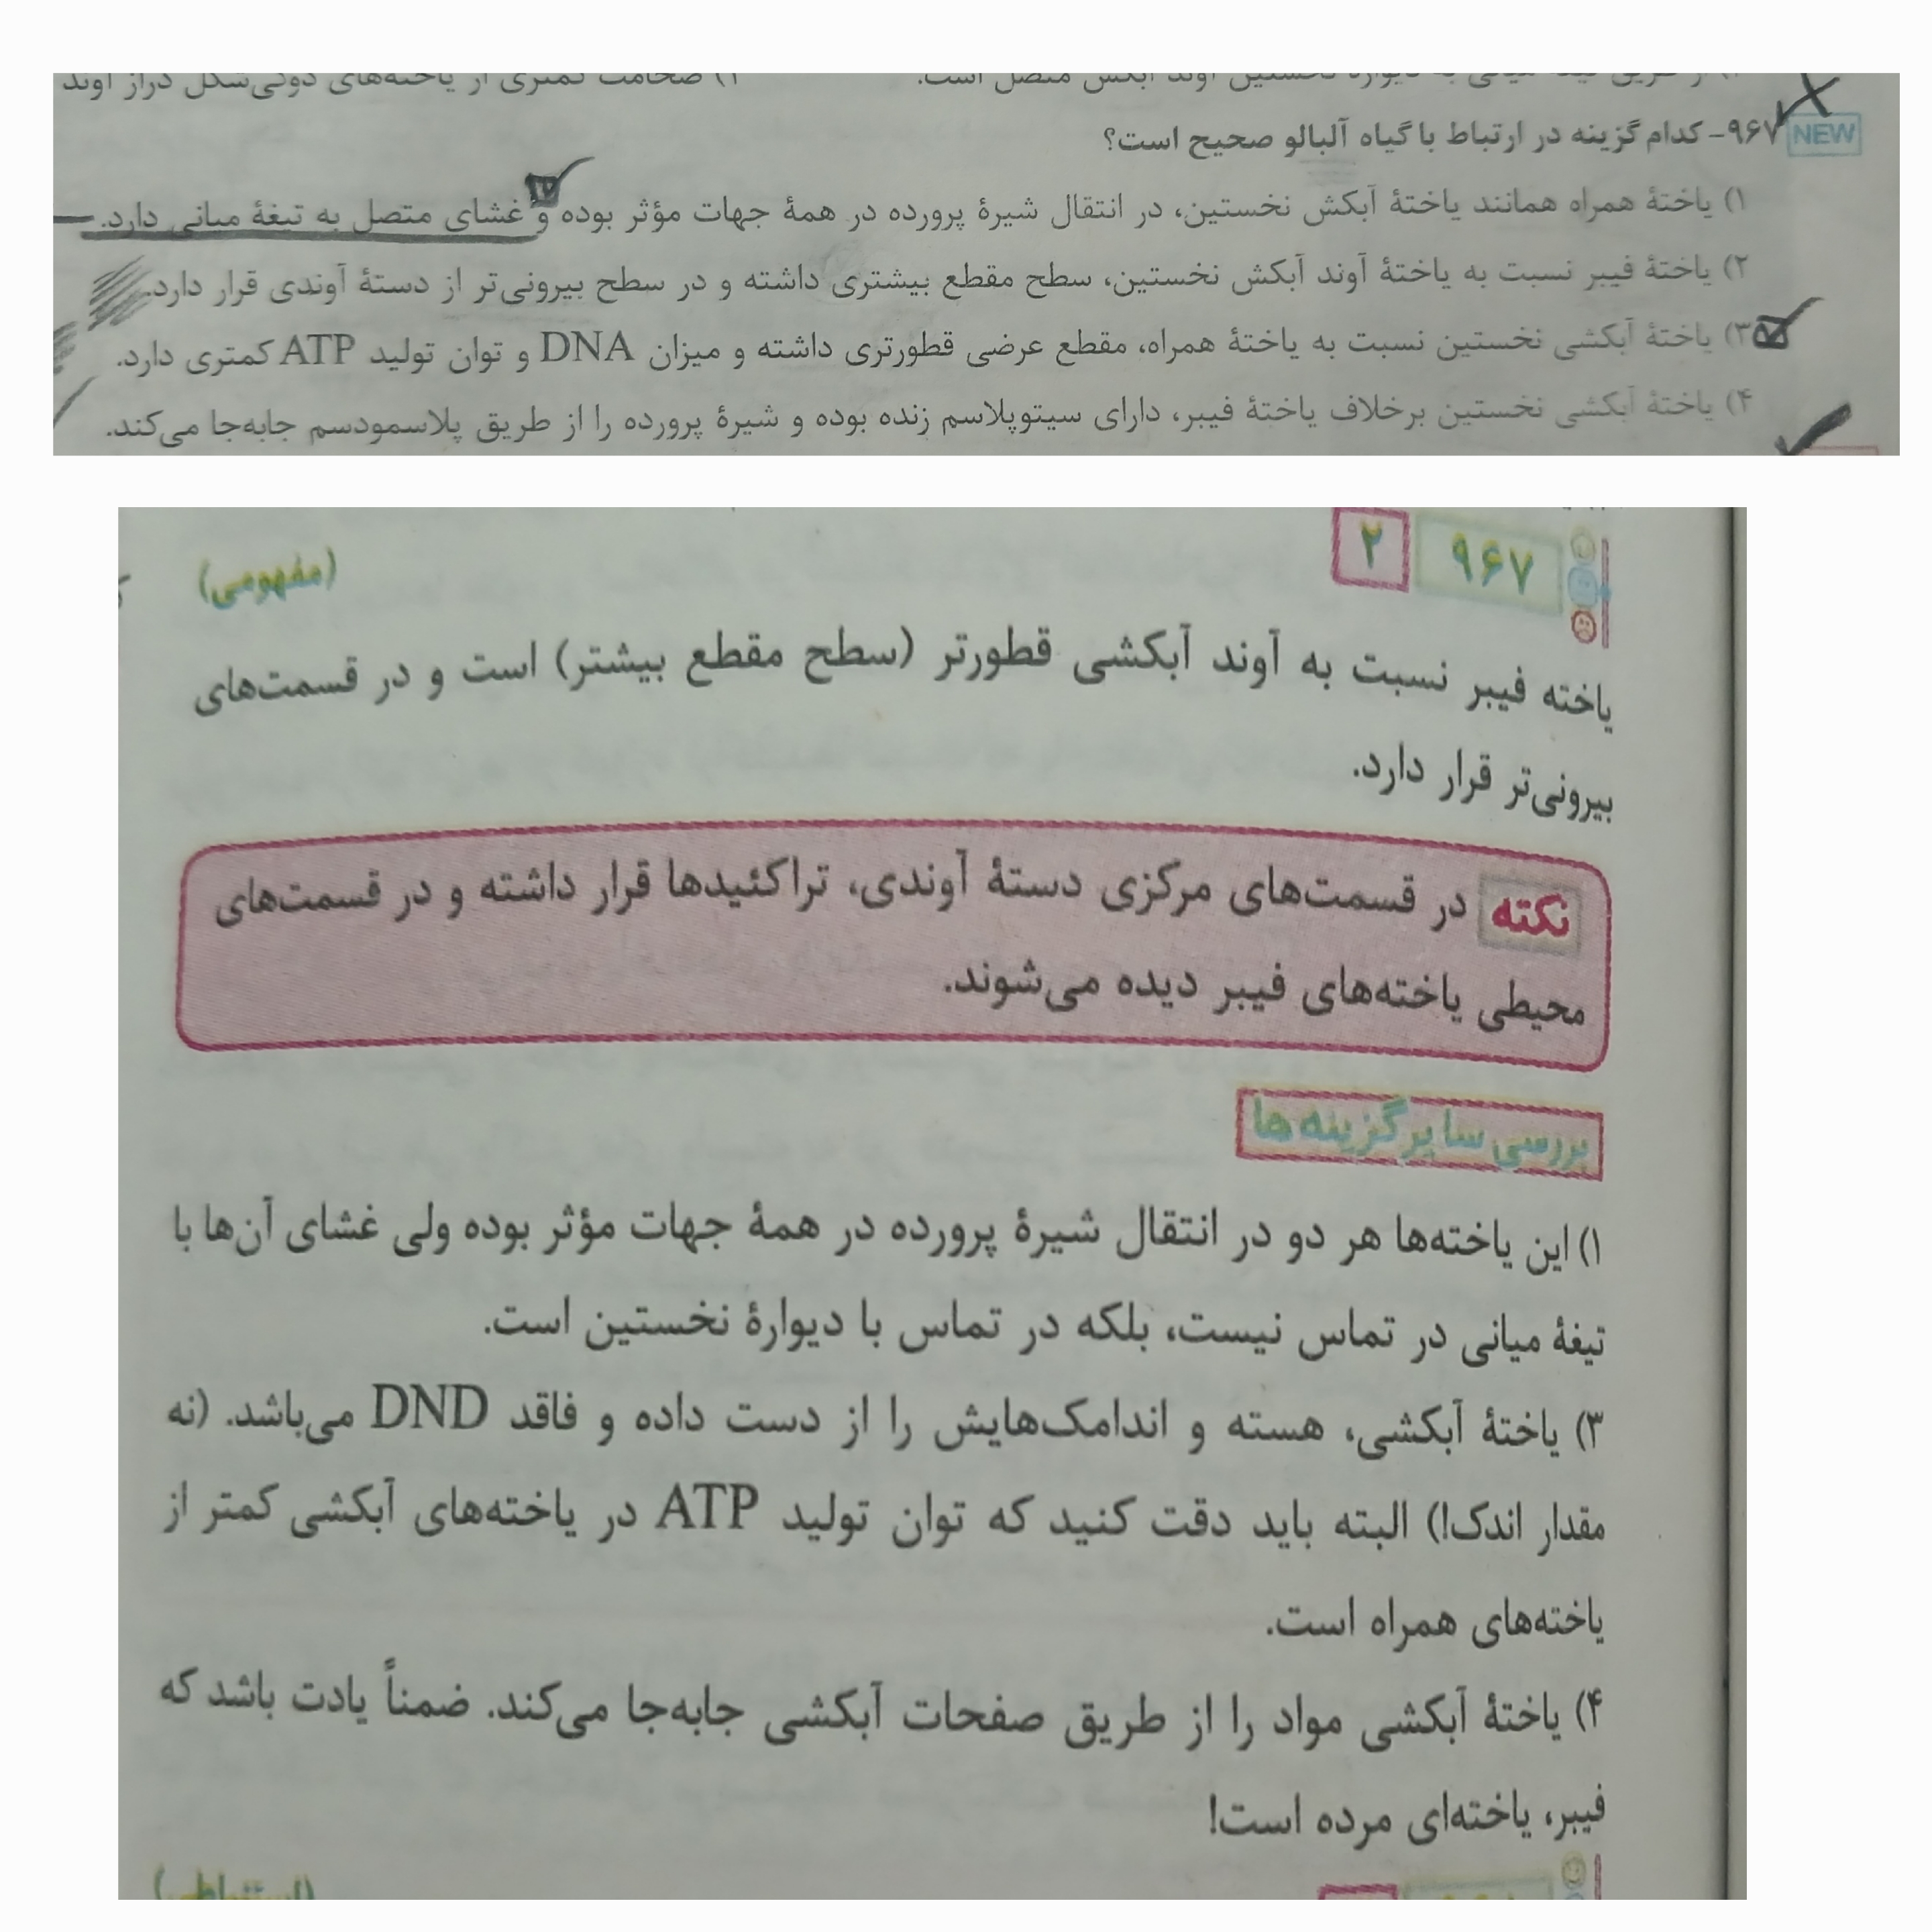 ۹۶۷- کدام گزینه در ارتباط با گیاه آلبالو صحیح است؟ NEW
۱) یاختهٔ همراه همانند یاختهٔ آبکش نخستین، در انتقال شیرهٔ پرورده در همهٔ جهات مؤثر بوده و غشای متصل به تیغهٔ میانی دارد.
۲) یاختهٔ فیبر نسبت به یاختهٔ آوند آبکش نخستین، سطح مقطع بیشتری داشته و در سطح بیرونی‌تر از دستهٔ آوندی قرار دارد.
۳) یاختهٔ آبکشی نخستین نسبت به یاختهٔ همراه، مقطع عرضی قطورتری داشته و میزان DNA و توان تولید ATP کمتری دارد.
۴) یاختهٔ آبکشی نخستین برخلاف یاختهٔ فیبر، دارای سیتوپلاسم زنده بوده و شیرهٔ پرورده را از طریق پلاسمودسم جابه‌جا می‌کند.
۹۶۷ ۲ (مفهومی)
یاخته فیبر نسبت به آوند آبکشی قطورتر (سطح مقطع بیشتر) است و در قسمت‌های
بیرونی‌تر قرار دارد.
نکته در قسمت‌های مرکزی دستهٔ آوندی، تراکئیدها قرار داشته و در قسمت‌های
محیطی یاخته‌های فیبر دیده می‌شوند.
بررسی سایر گزینه ها
۱) این یاخته‌ها هر دو در انتقال شیرهٔ پرورده در همهٔ جهات مؤثر بوده ولی غشای آن‌ها با
تیغهٔ میانی در تماس نیست، بلکه در تماس با دیوارهٔ نخستین است.
۳) یاختهٔ آبکشی، هسته و اندامک‌هایش را از دست داده و فاقد DND می‌باشد. (نه
مقدار اندک!) البته باید دقت کنید که توان تولید ATP در یاخته‌های آبکشی کمتر از
یاخته‌های همراه است.
۴) یاختهٔ آبکشی مواد را از طریق صفحات آبکشی جابه‌جا می‌کند. ضمناً یادت باشد که
فیبر، یاخته‌ای مرده است!